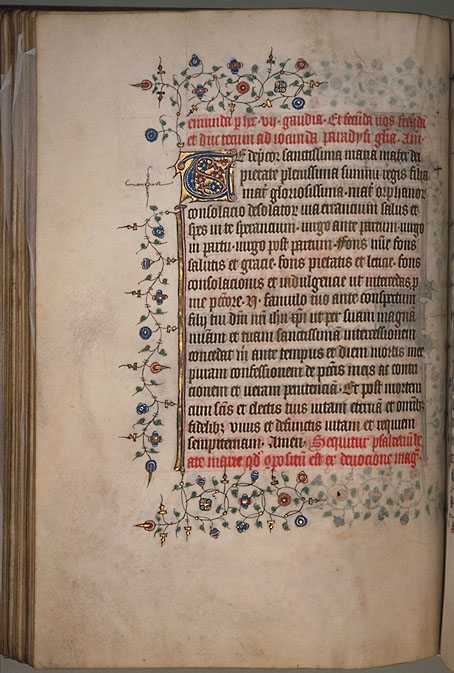 emunda p hec · vij · gaudia · Et fecūda nos fecūda
et duc tecum ad iocunda paradysi glīa · Am̄ ·
Te dep̄cor sanctissima maria mater dei
pietate plenissima summi regis filia
mat̄ gloriosissima · mat̄ orphanor
consolacio desolator via errancium salus et
spes in te sperancium · virgo ante partum · virgo
in partu · virgo post partum · Fons mīe fons
salutis et gracie · fons pietatis et leticie · fons
consolacionis et indulgencie ut intercedas p
me pc̄tore · N · famulo tuo ante conspectum
filij tui dn̄i nr̄i ihū xp̄i ut per suam magnā
mīam et tuam sanctissimā intercessionem
concedat m̄ ante tempus et diem mortis mee
puram confessionem de pc̄tis meis ac contri
cionem et ueram penitenciā · Et post mortem
cum sc̄is et electis tuis uitam eternā et om̄ib
fidelib uiuis et defunctis uitam et requiem
sempiternam · Amen · Sequitur psalteriū be
ate marie qd opositū est ex deuocione mag